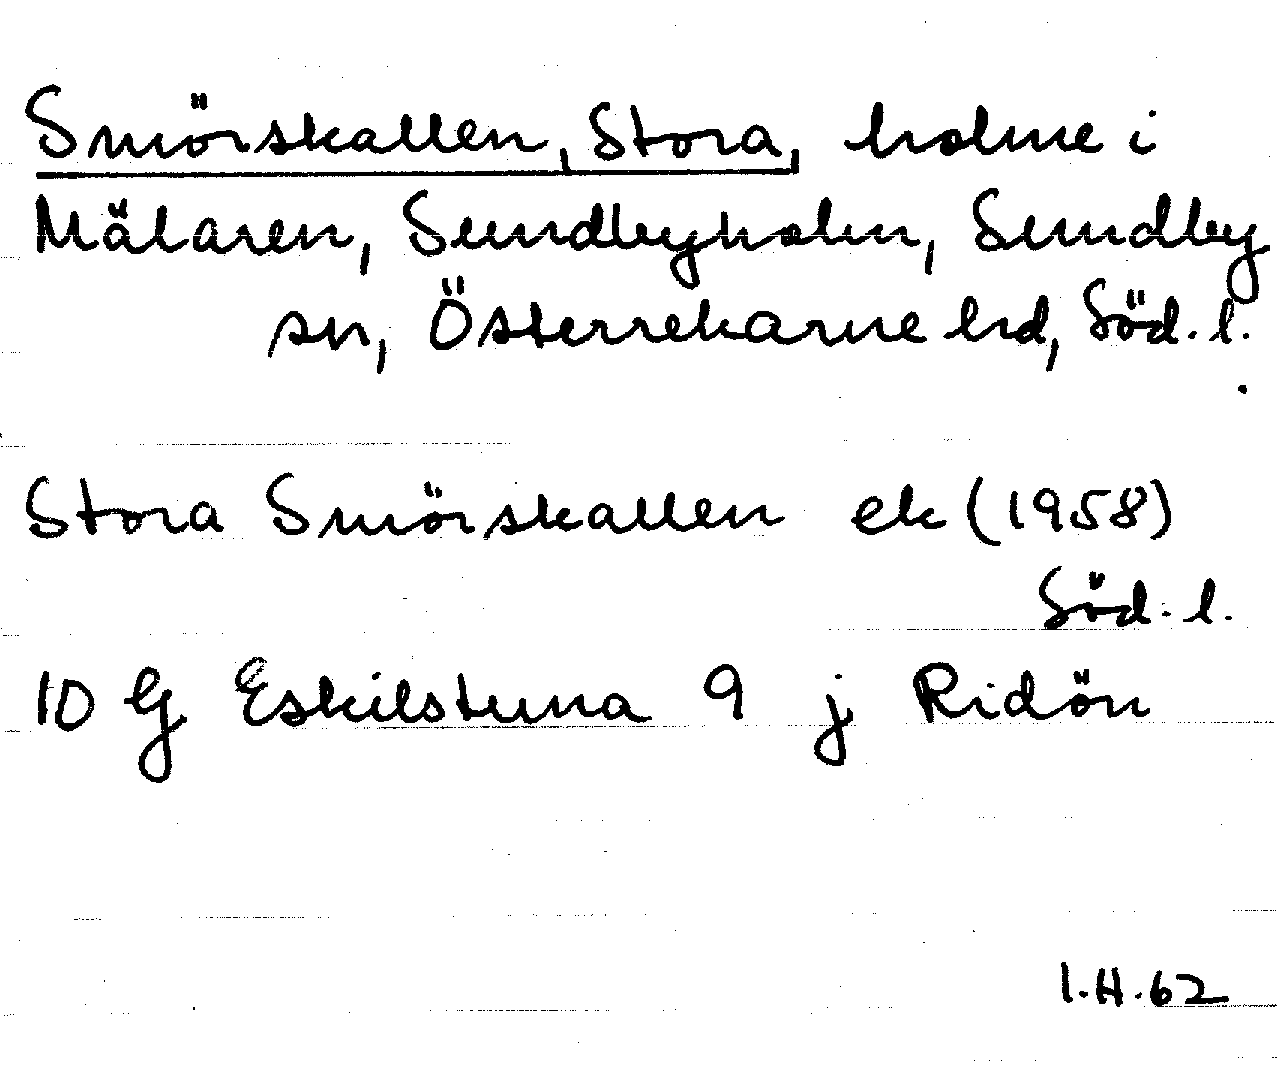 Smörskallen, Stora, holme i
Mälaren, Sundbyholm, Sundby
sn, Österrekarne hd, Söd. l.
Stora Smörskallen ek (1958)
Söd. l.
10 G Eskilstuna 9 j Ridön
I.H.62